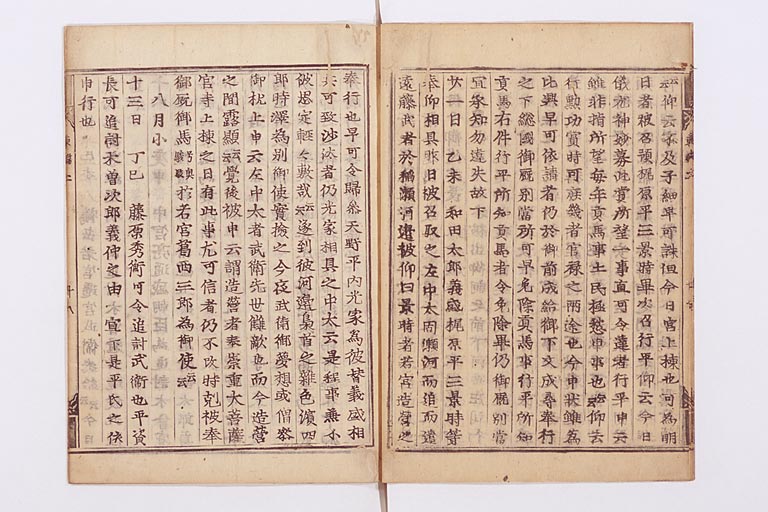 云仰云不及子細早可誅但今日宮上棟也可為明
日者被召預梶原平三景時畢次召行平仰云今日
儀都神妙募此賞所望一事直可令達者行平申云
雖非指所望毎年貢馬事土民極愁申事也云仰云
行勲功賞時可庶幾者官禄之両途也今申状雖為
比興早可依請者仍於御前成給御下文成尋奉行
之下総國御厩別當所可早免除貢馬事行平所知
貢馬右件行平所知貢馬者令免除畢仍御厩別當
宜承知勿違失故下
廿一日乙未 和田太郎義盛梶原平三景時等
奉仰相具昨日被召取之左中太向瀬河而遣
遠藤武者於稲瀬河邊被仰曰景時者若宮造営之
奉行也早可令歸參天野平内光家為彼替義盛相
共可致沙汰者仍光家相具之中太云是程事兼不
被思定輕々敷哉云遂到彼河邊梟首之雜色濵四
郎時澤為別御使實撿之今夜武衛御夢想或僧參
御枕上申云左中太者武衛先世讎敵也而今造営
之間露顯云覺後被申云謂造営者奉崇重大菩薩
官寺上棟之日有此事尤可信者仍不改時剋被奉
御厩御馬於若宮葛西三郎為御使云
八月小
十三日 丁巳 藤原秀衡可令追討武衛也平資
長可追討木曽次郎義仲之由宣下是平氏之依
申行也